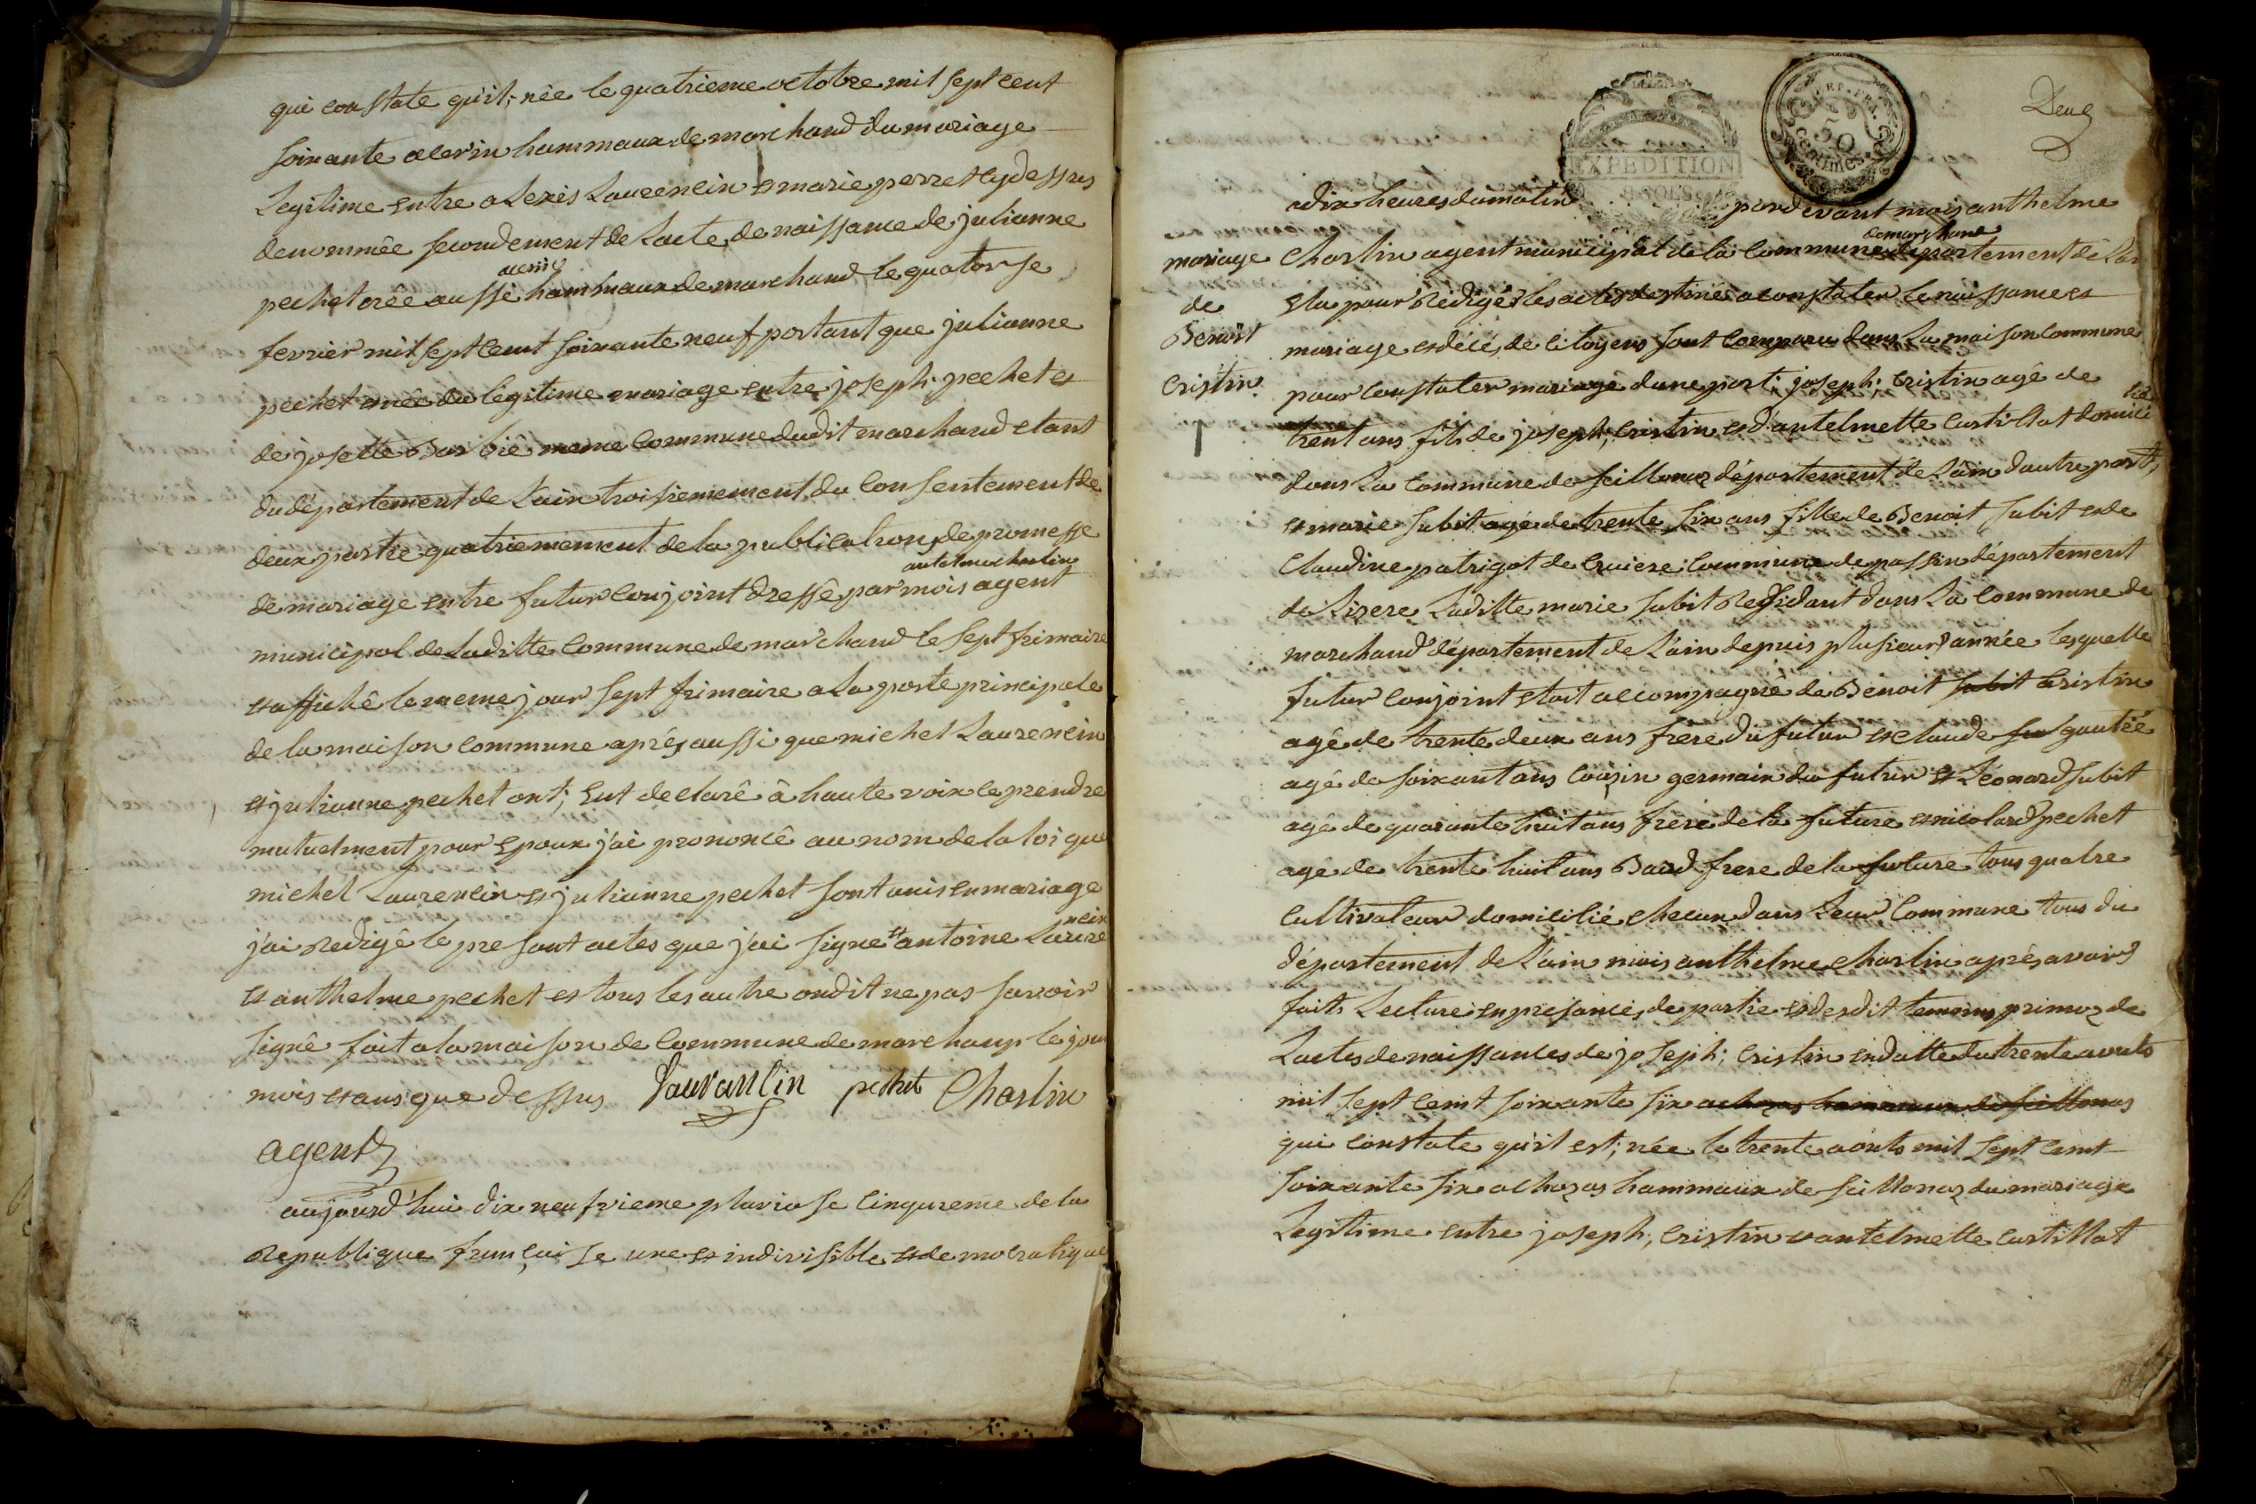 qui constate qu'il; née le quatrieme octobre mil sept cent
soixante a cerin hammaux de marchand du mariage
Legitime entre alexis Laurencin et marie perret cy dessus
denommée secondement de Lacte de naissance de julianne
acerin
pechet née aussi hammaux de marchand le quatorse
fevrier mil sept cent soixante neuf portant que julianne
pechet et née du legitime mariage entre joseph; pechet et
de josette Barbié meme commune dudit marchand etant
du département de Lain troisiemement du consentement de
deux partie quatriemement de la publication de promesse
antelme charlin
de mariage entre futur conjoint dressé par mois agent
municipal de Laditte commune de marchand le sept frimaire
et affiché le meme jour sept frimaire a la porte principale
de la maison commune après aussi que michel Laurencin
et julianne pechet ont; eut declaré à haute voix ce prendre
mutuelment pour epoux j'ai prononcé au nom de la loi que
michel Laurencin et julianne pechet sont unis en mariage
j'ai Redigé le presant actes que j'ai signe et antoine Laurencin
et anthelme pechet et tous les autre ondit ne pas savoir
signé fait a la maison de commune de marchamp le jour
mois et ans que dessus Lauranlin pechet Charlin
agent
aujourd'huie dix neufvieme pluviose cinquieme de la
Republique françaisse une et indivisible et democratique
EXPEDITION
REP. FRA.
50
centimes
Deux
a dix heures du matin par devant mois anthelme
de marchand
mariage
de
Benoit
Cristin
Charlin agent municipal de la commune département de Lain
elu pour Redigér les actes destinée a constater le naissance et
mariage et décés de citoyens sont comparu dans La maison commune
pour constater mariage dune part; joseph; Cristin agé de
trent ans fils de joseph; Cristin et d'antelmette Curtillat domicilié
dans La commune de seillonaz département de Lain d'autre part;
et marie subit agé de trente six ans fille de Benoit subit et de
Claudine patrigot de cruiere; commune de passin département
de Lizere Laditte marie subit Residant dans La commune de
marchand département de Lain depuis plusieurs année lesquelle
futur conjoint etoit accompagné de Benoit subit Cristin
agé de trente deux ans frere du futur et claude gautié
agé de soixant ans couzin germain du futur et Léonard subit
agé de quarante huit ans frére de la future et nicolard pechet
agé de trente huit ans Baud frere de la future tous quatre
Cultivateur domicilié checun dans Leur commune tous du
département de Lain mois anthelme Charlin après avoir
fait Lecture en presance de partie et desdit temoins primo de
Lactes de naissances de joseph; Cristin en datte du trente aouts
mil sept cent soixante six a chozas hammaux de seillonas
qui constate qu'il est; née le trente aouts mil sept cent
soixante six a chozas hammaux de seillonaz du mariage
Legitime entre joseph; Cristin et antelmette Curtillat